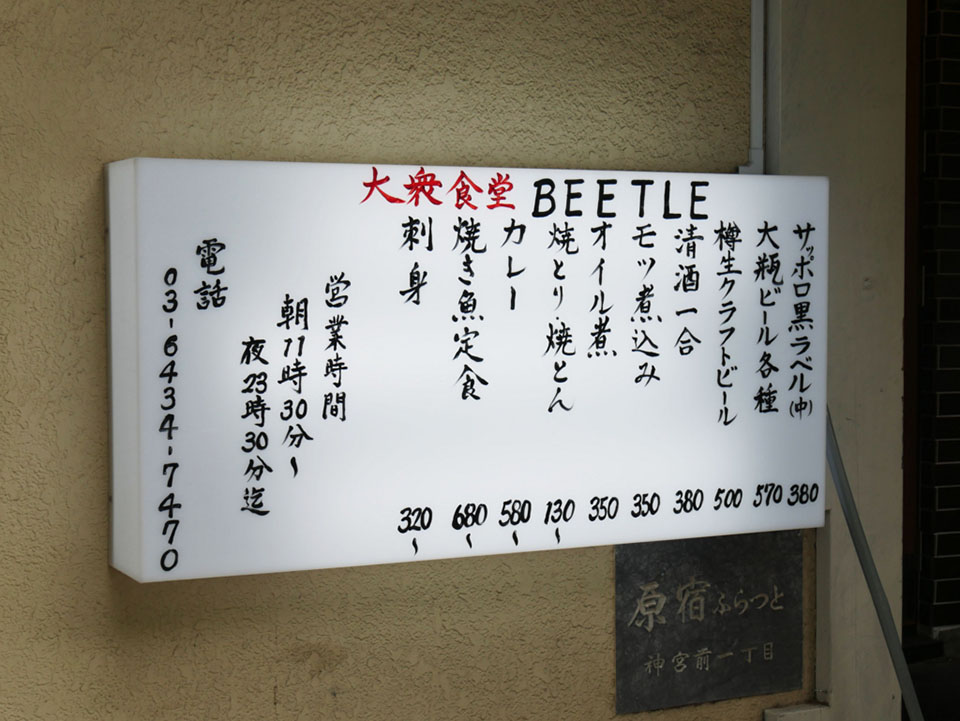 大衆食堂 BEETLE
サッポロ黒ラベル(中) 380
大瓶ビール各種 570
樽生クラフトビール 500
清酒一合 380
モツ煮込み 350
オイル煮 350
焼とり、焼とん 130〜
カレー 580〜
焼き魚定食 680〜
刺身 320〜
営業時間
朝11時30分〜
夜23時30分迄
電話
03-6434-7470
原宿ふらっと
神宮前一丁目